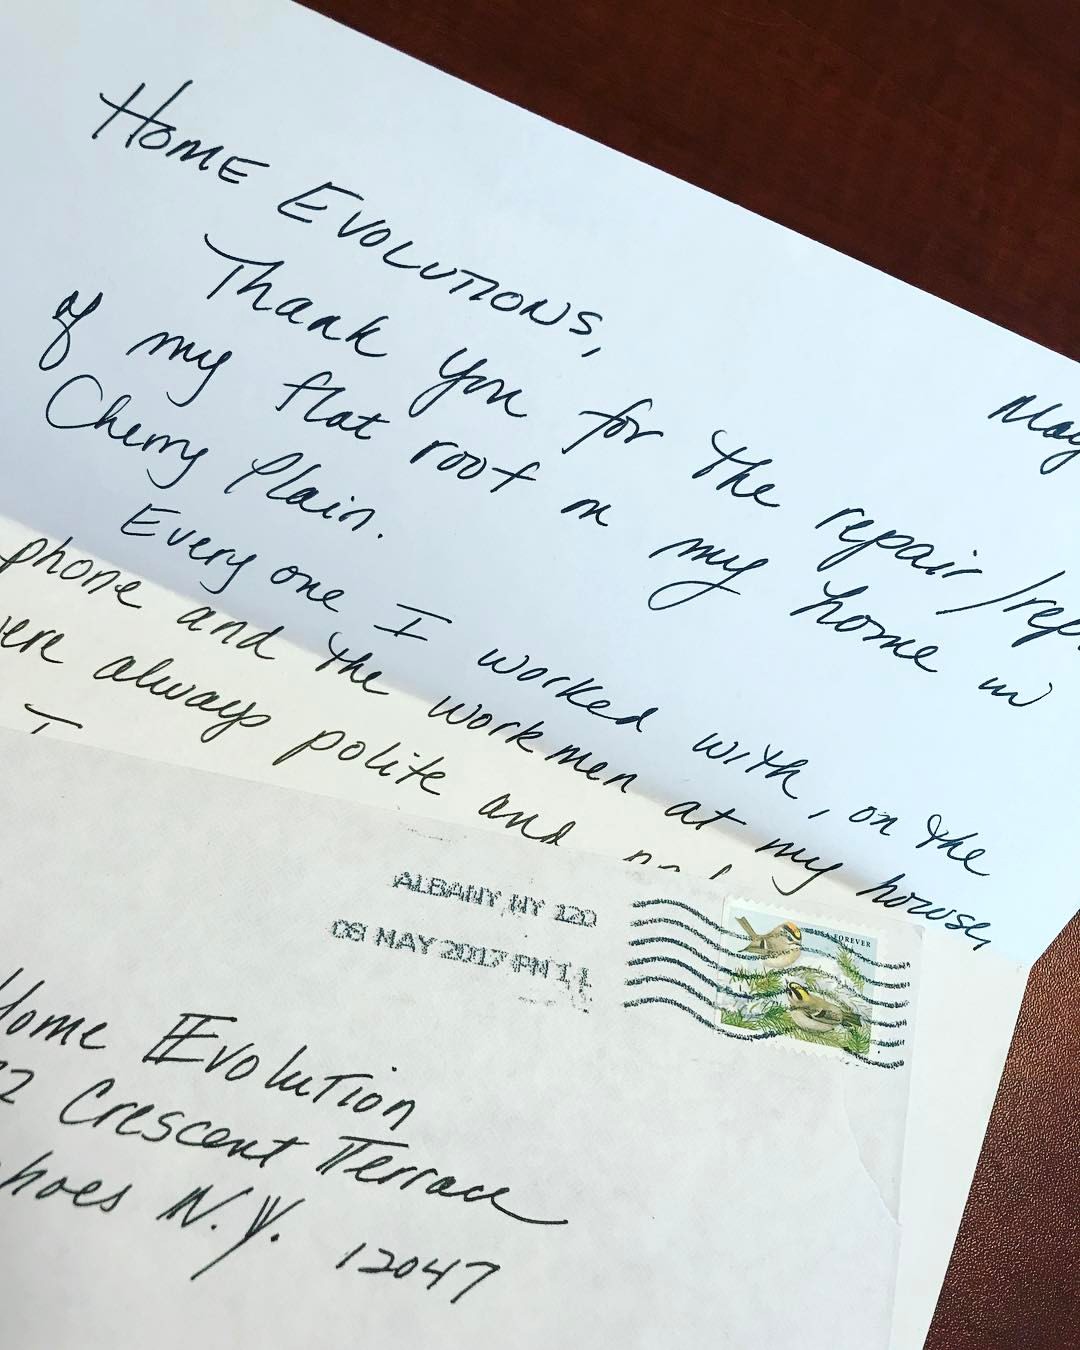 May
HOME EVOLUTIONS,
Thank you for the repair/rep
of my flat roof on my home in
Cherry Plain.
Every one I worked with, on the
phone and the workmen at my howse,
ere always polite and
I
ALBANY NY 120
08 MAY 2017 PM 1 L
USA FOREVER
Home Evolution
22 Crescent Terrace
hoes N.Y. 12047